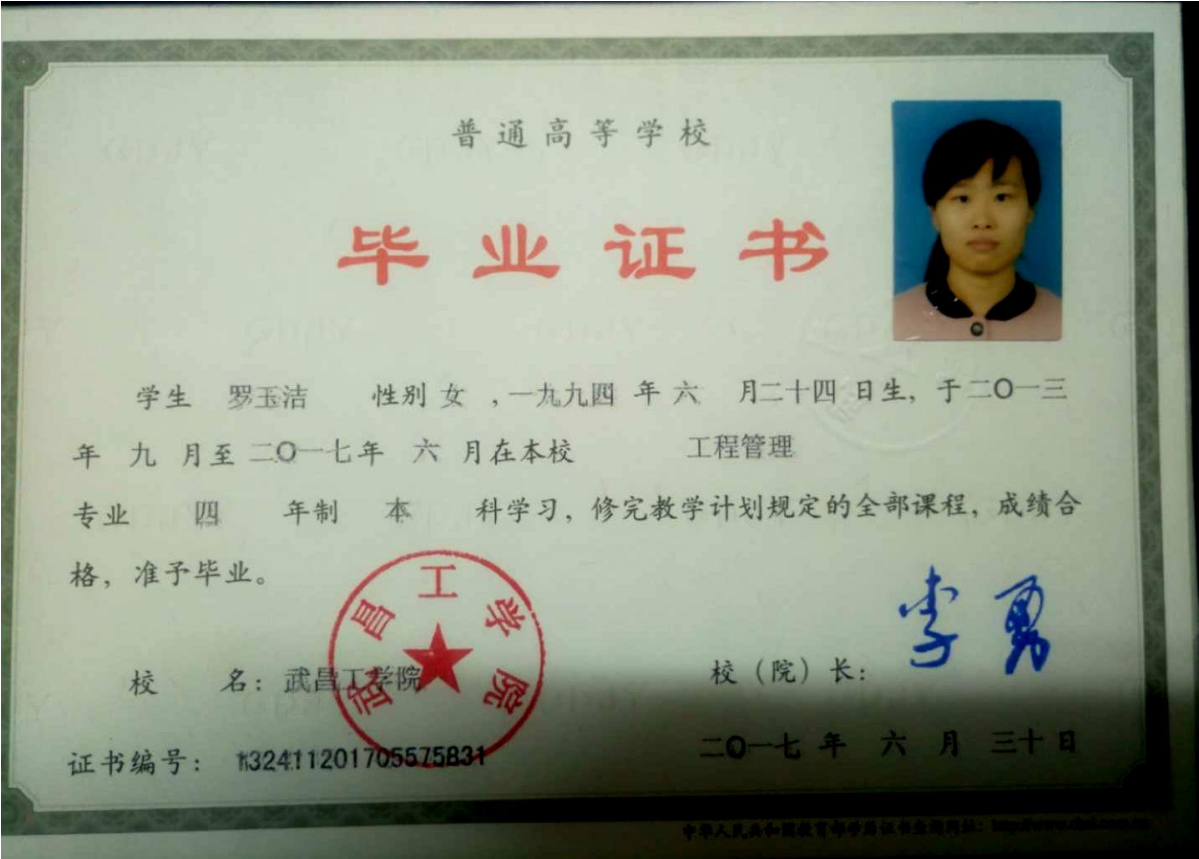 普通高等学校
毕业证书
学生 罗玉洁 性别 女 ,一九九四 年 六 月二十四 日生，于二〇一三
年 九 月至 二〇一七年 六 月在本校 工程管理
专业 四 年制 本 科学习，修完教学计划规定的全部课程，成绩合
格，准予毕业。
武昌工学院
李勇
校 名：武昌工学院 校（院）长：
证书编号： 132411201705575831 二〇一七 年 六 月 三十 日
中华人民共和国教育部学历证书查询网址：